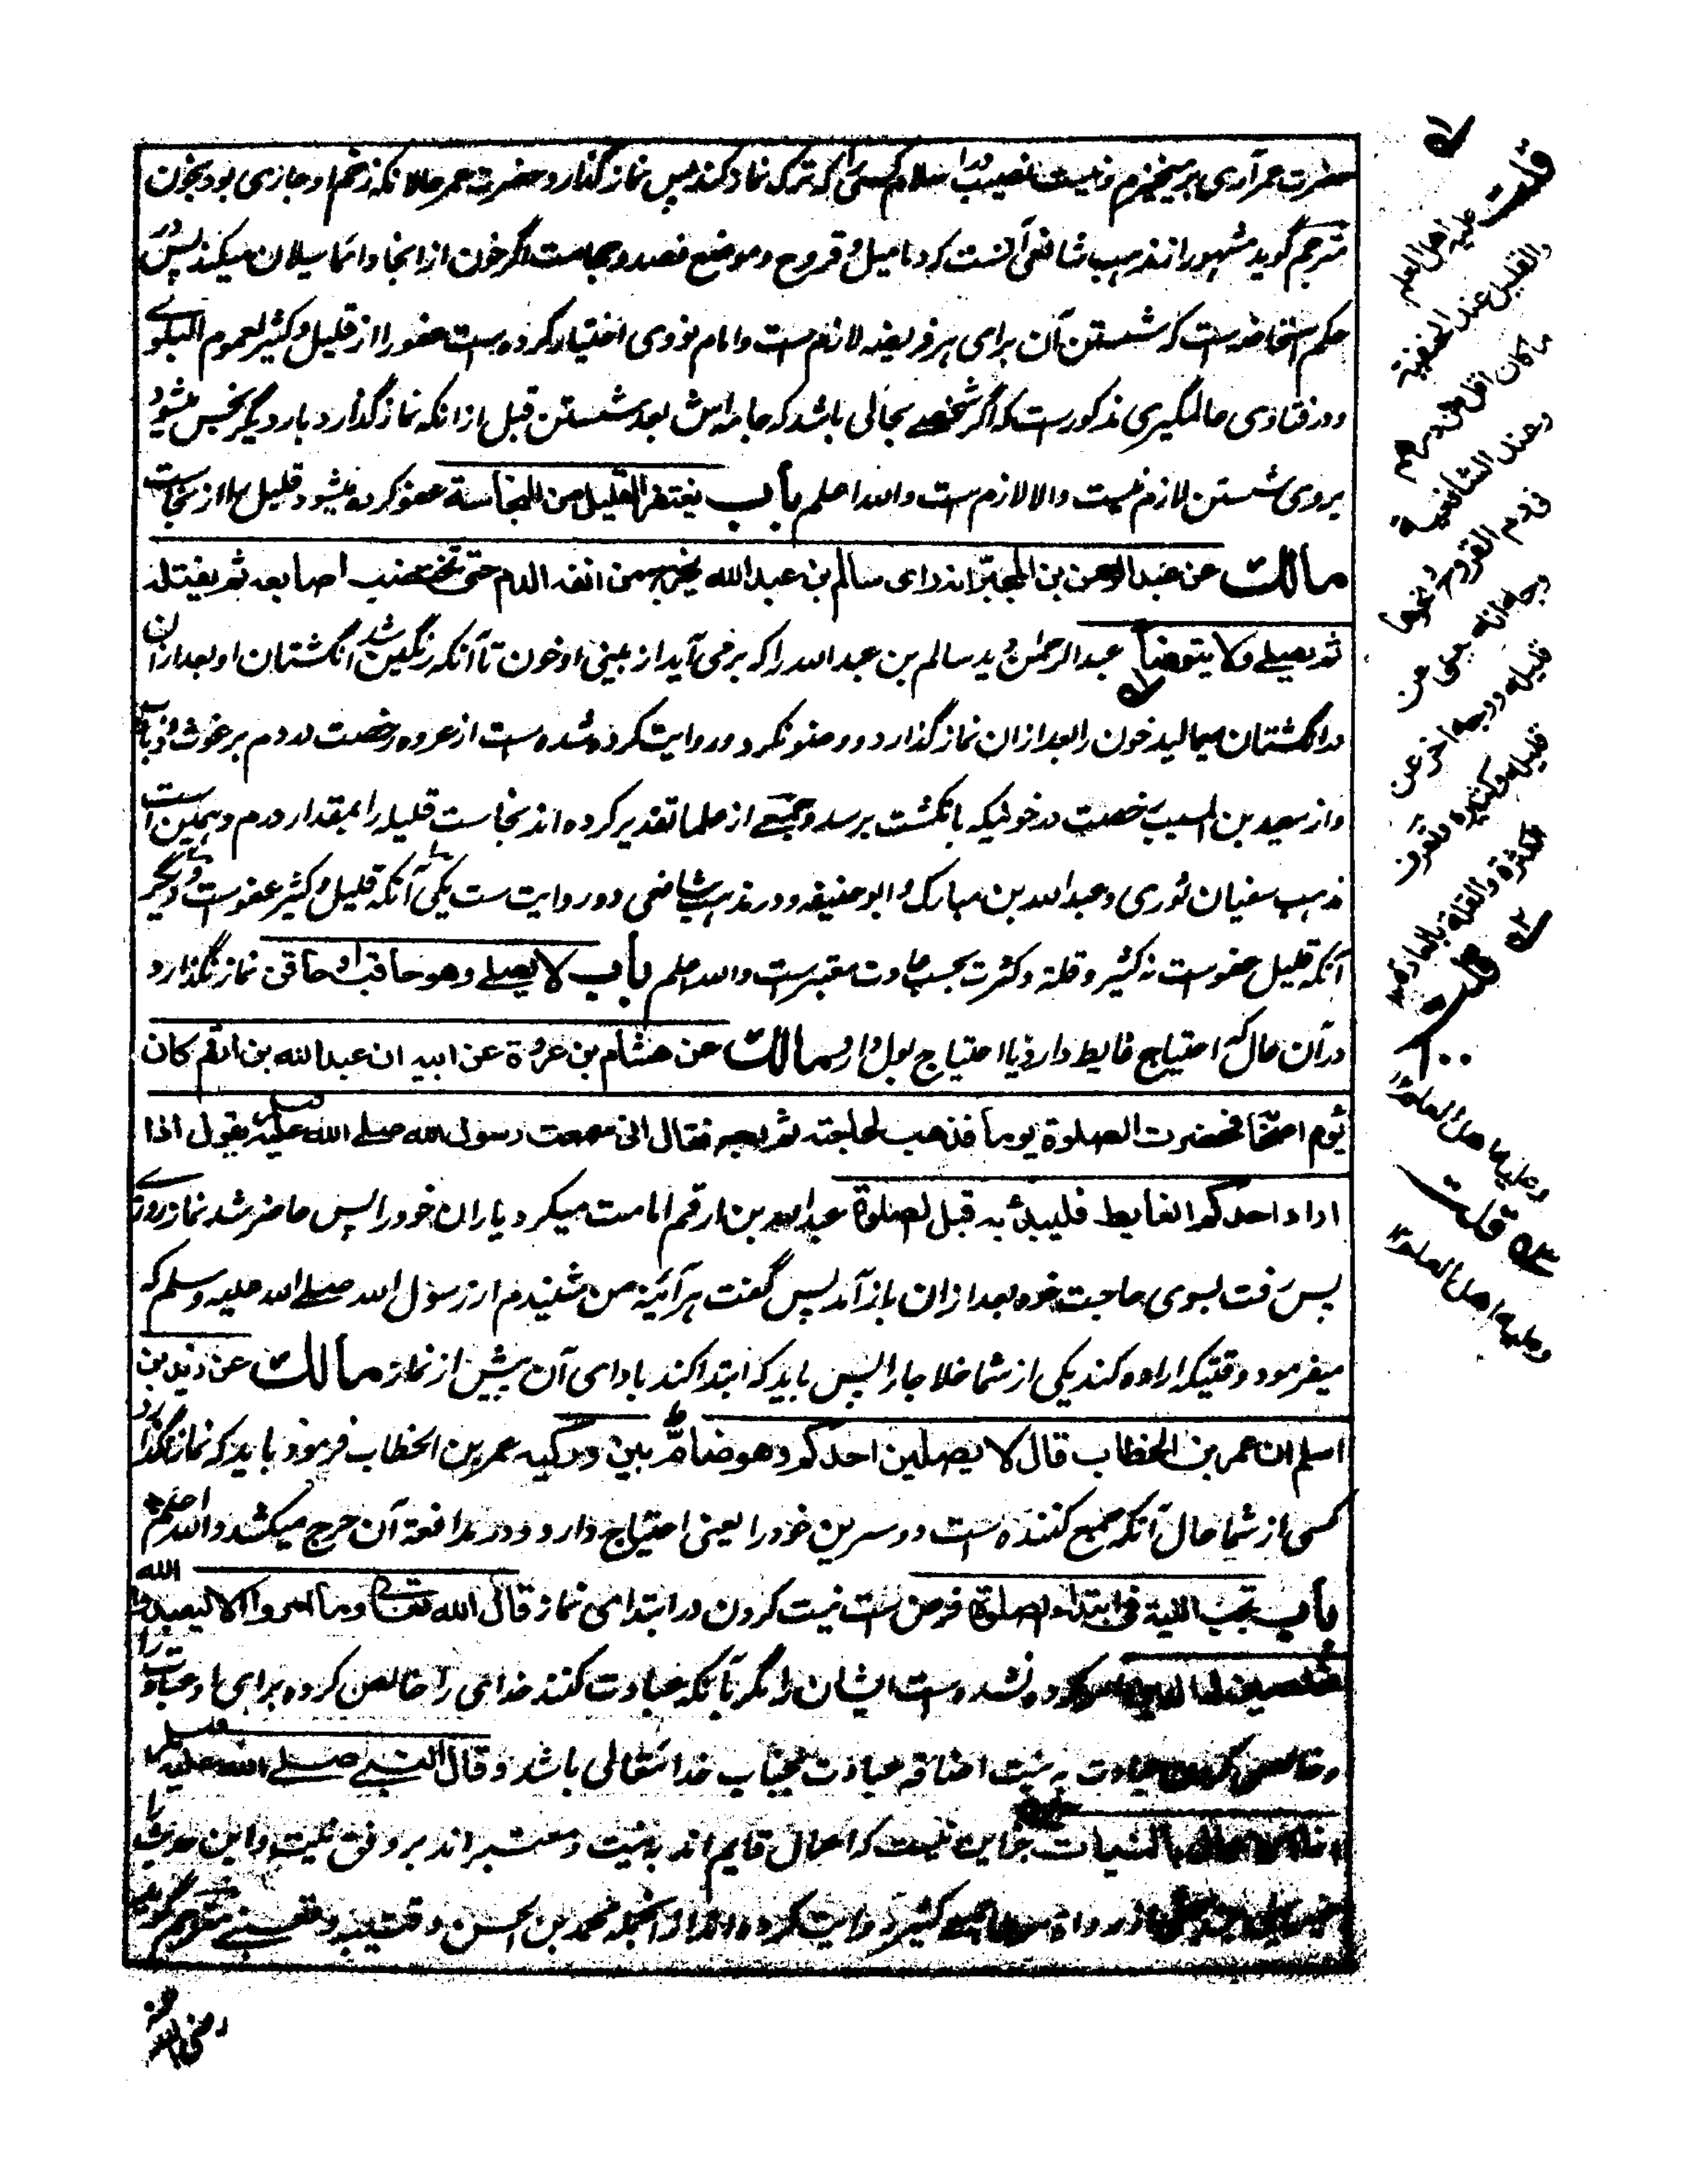 حضرت عمر آری برمیخیزم و نیست نصیب در اسلام کسی را که ترک نماز کند پس نماز گذارد حضرت عمر حالانکه زخم او جاری بود بخون
مترجم گوید مشهور از مذهب شافعی آنست که دمامیل و قروح و موضع فصد و حجامت اگر خون از انجا دائما سیلان میکند پس در
حکم استحاضه است که شستن آن برای هر فریضه لازم است و امام نووی اختیار کرده است عفو را از قلیل و کثیر لعموم البلوے
و در فتاوی عالمگیری مذکور است که اگر شخصے بحالی باشد که جامه اش بعد شستن قبل از انکه نماز گذارد بار دیگر نجس میشود
بروی شستن لازم نیست والا لازم ست والله اعلم باب یغتفر القلیل من النجاسة عفو کرده میشود قلیل از نجاست
مالك عن عبد الرحمن بن المجبّر انه رای سالم بن عبد الله یخرج من انفه الدم حتی تختضب اصابعه ثم یفتله
ثم یصلے ولا یتوضأ عبد الرحمٰن دید سالم بن عبد الله را که برمی آید از بینی او خون تا آنکه رنگین شد انگشتان او بعد ازان
در انگشتان میمالید خون را بعد ازان نماز گذارد و وضو نکرد و روایت کرده شده است از عروه رخصت در دم برغوث و ذباب
و از سعید بن المسیب رخصت در خونیکه بانگشت برسد و جمعے از علما تقدیر کرده اند نجاست قلیله را بمقدار درم و همین است
مذهب سفیان ثوری و عبد الله بن مبارک و ابو حنیفه و در مذهب شافعی دو روایت ست یکی آنکه قلیل و کثیر عفوست و دیگر
آنکه قلیل عفوست نه کثیر و قلة و کثرت بحسب عادت معتبرست والله اعلم باب لا یصلے وهو حاقب او حاقن نماز نگذارد
در آن حال که احتیاج غایط دارد یا احتیاج بول دارد مالك عن هشام بن عروة عن ابیه ان عبد الله بن ارقم کان
یؤم اصحابه فحضرت الصلوة یوما فذهب لحاجته ثم رجع فقال انی سمعت رسول الله صلے الله علیه وسلم یقول اذا
اراد احدکم الغایط فلیبدأ به قبل الصلوة عبد الله بن ارقم امامت میکرد یاران خود را پس حاضر شد نماز روزے
پس رفت بسوی حاجت خود بعد ازان باز آمد پس گفت هر آئینه من شنیدم از رسول الله صلے الله علیه وسلم که
میفرمود وقتیکه اراده کند یکی از شما خلا جا را پس باید که ابتدا کند بادای آن پیش از نماز مالك عن زید بن
اسلم ان عمر بن الخطاب قال لا یصلین احدکم وهو ضامّ بین ورکیه عمر بن الخطاب فرمود باید که نماز نگذارد
کسی از شما حال آنکه جمع کننده است دو سرین خود را یعنی احتیاج دارد و در مدافعة آن حرج میکشد والله اعلم
باب تجب النیة فی ابتداء الصلوة فرض ست نیت کردن در ابتدای نماز قال الله تعالے وما امروا الا لیعبدوا الله
مخلصین له الدین کرده نشده است ایشان را مگر بآنکه عبادت کنند خدای را خالص کرده برای او عبادت را
و خالص کردن عبادت به نیت اضافه عبادت بجناب خدا تعالی باشد و قال النبے صلے الله علیه وسلم
انما الاعمال بالنیات جز این نیست که اعمال قایم اند به نیت و معتبر اند بر وفق نیت و این حدیث را
از رواة کثیر روایت کرده اند از انجمله محمد بن الحسن و قعنبے مترجم گوید
رضی الله عنه
ے۱
قلت
علیه اهل العلم
والقلیل عند الحنفیة
ما کان اقل من درهم
وعند الشافعیة
فی دم القروح ونحوها
وجهان انه یعفی عن
قلیله ووجه اخر عن
قلیله وکثیره وتعرف
الکثرة والقلة بالعادة
ے۲ قلت
وعلیه اهل العلم
ے۳ قلت
وعلیه اهل العلم